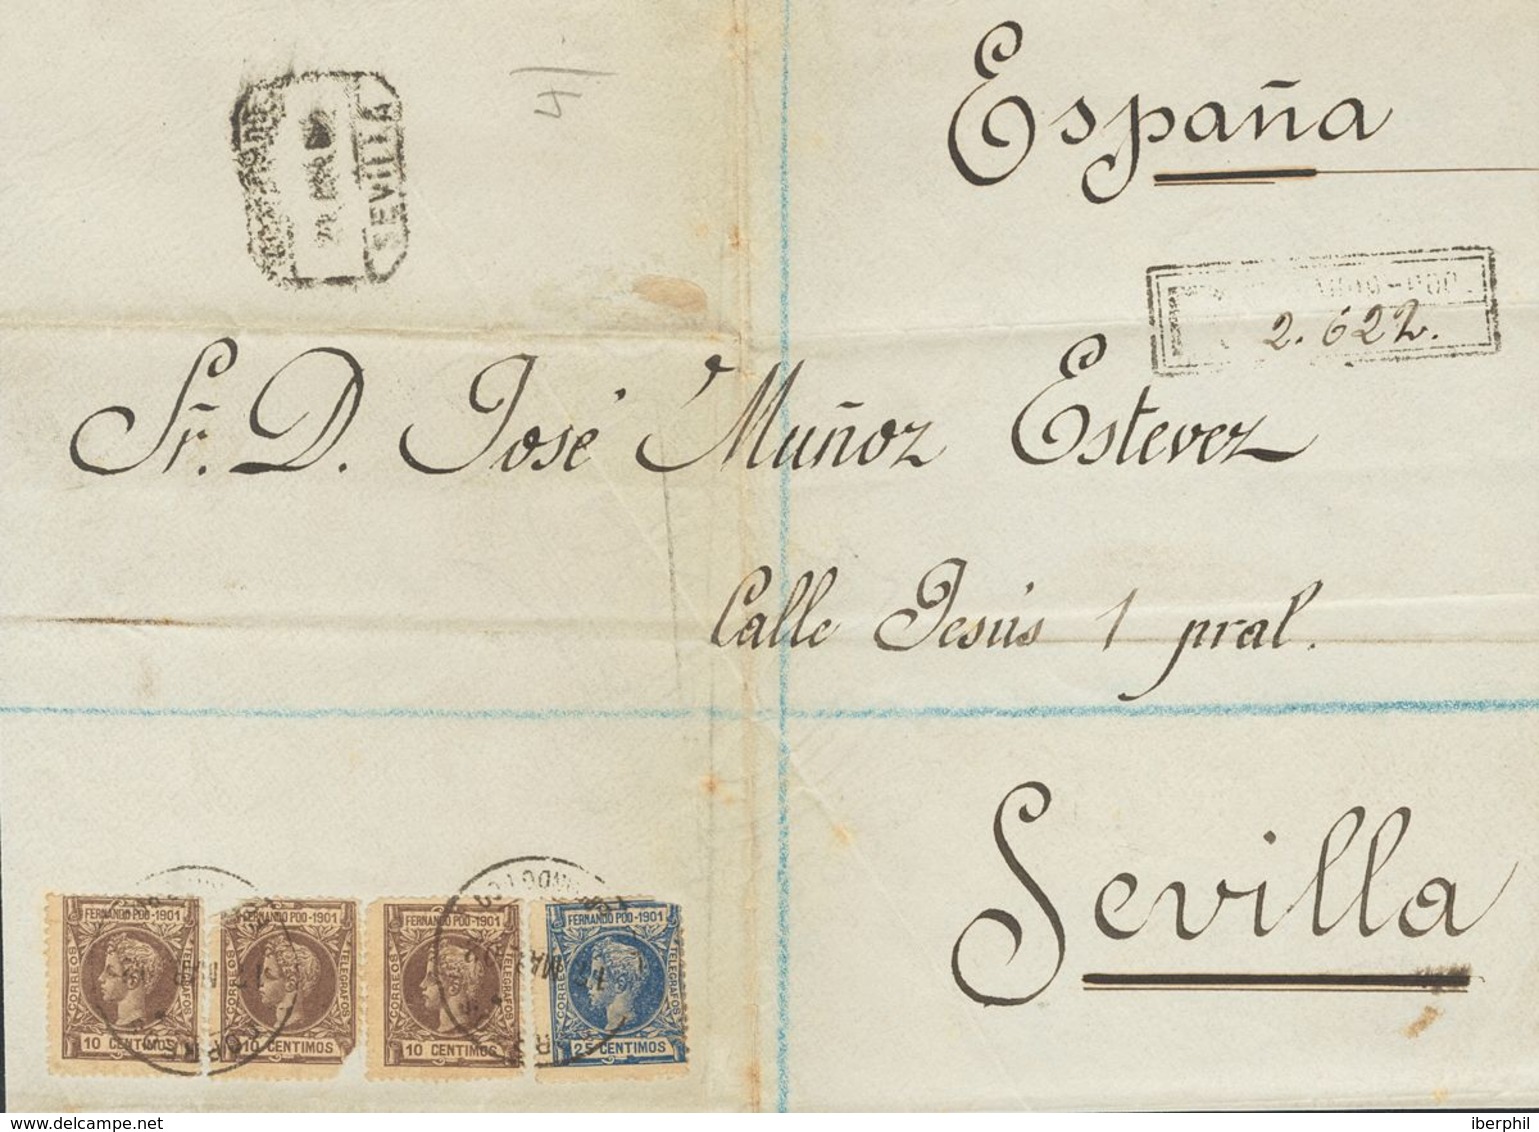 España
SEVILLA
2.622.
Sr. D. José Muñoz Estevez
Calle Jesús 1 pral.
Sevilla
FERNANDO POO-1901
CORREOS
TELEGRAFOS
10 CENTIMOS
FERNANDO POO-1901
CORREOS
TELEGRAFOS
10 CENTIMOS
FERNANDO POO-1901
CORREOS
TELEGRAFOS
10 CENTIMOS
FERNANDO POO-1901
CORREOS
TELEGRAFOS
25 CENTIMOS
17 MAR 02
17 MAR 02
iberphil